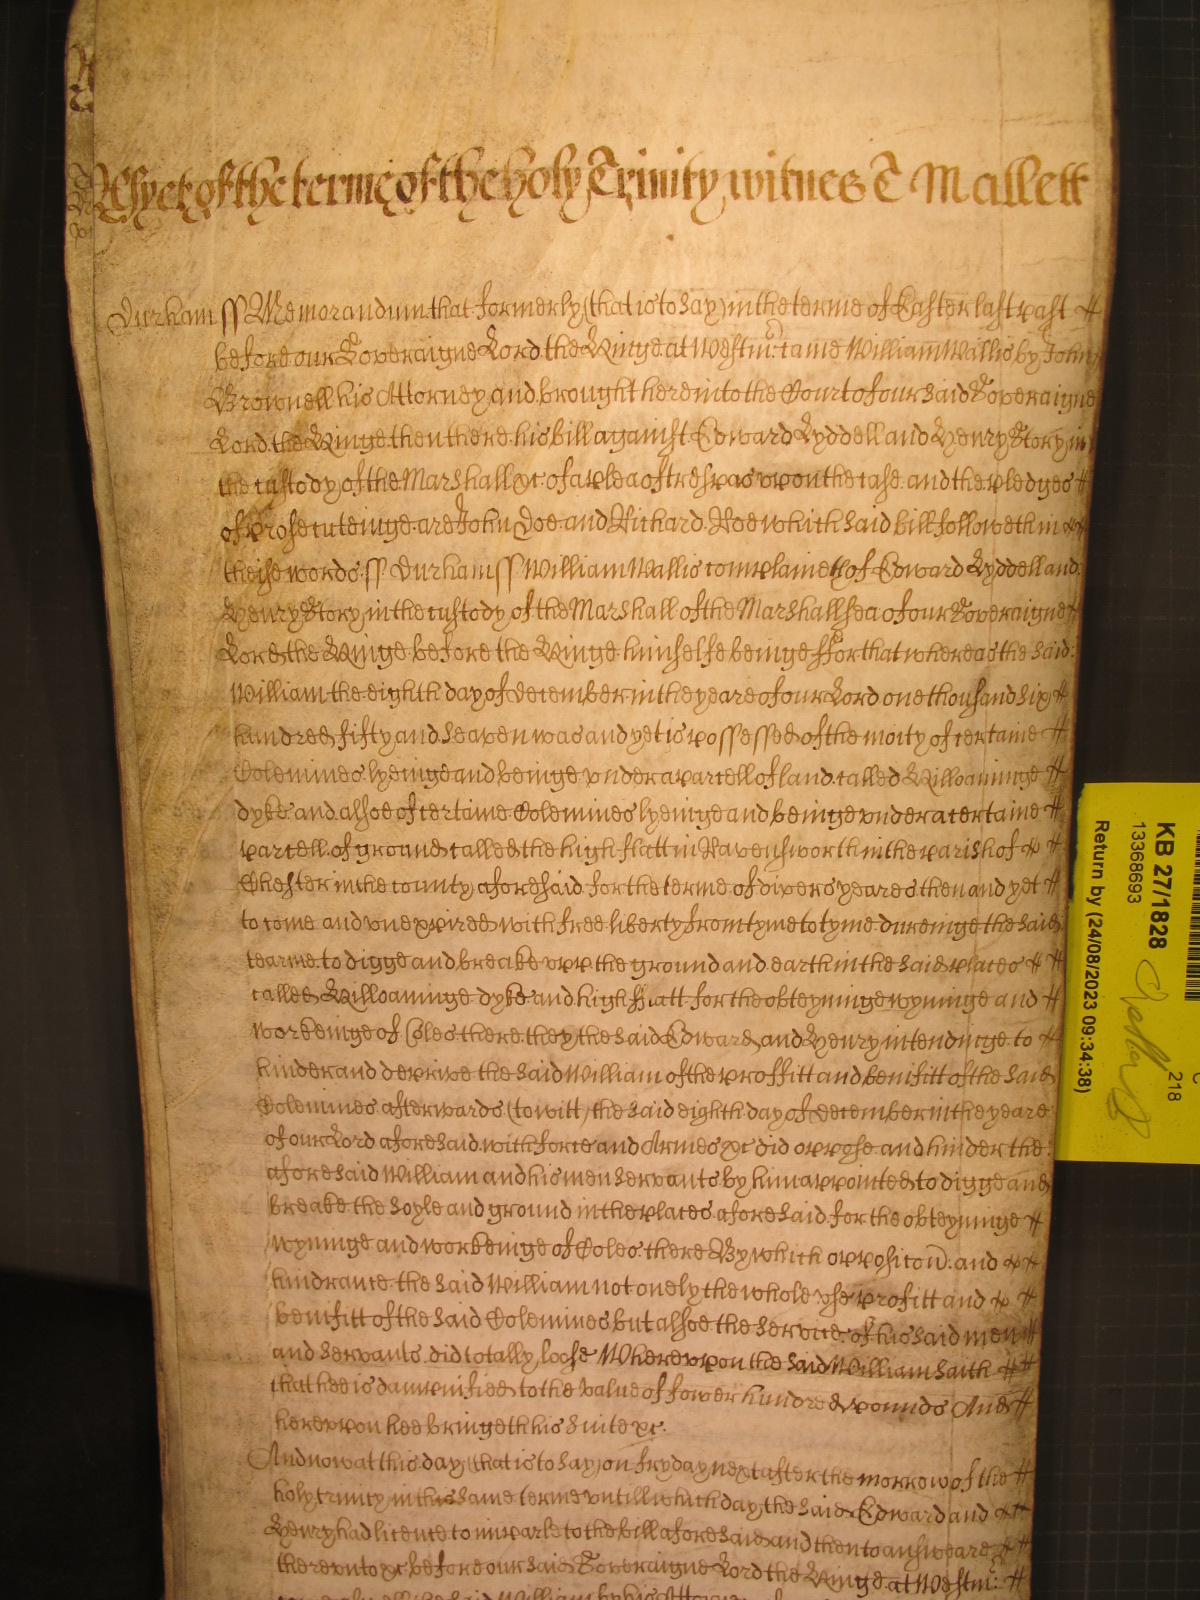 As yet of the terme of the holy Trinity witnes T Mallett
Durham ss Memorandum that formerly (that is to say) in the terme of Easter last past
before our Soveraigne Lord the Kinge at Westmr: came William Wallis by John
Brownell his Attorney and brought here into the Court of our said Soveraigne
Lord the Kinge then there his bill against Edward Lyddell and Henry Story in
the custody of the Marshall &c of a plea of trespas upon the case and the pledges
of prosecuteinge are John Doe and Richard Roe which said bill followeth in
theise words ss Durham ss William Wallis complaineth of Edward Lyddell and
Henry Story in the custody of the Marshall of the Marshallsea of our Soveraigne
Lord the Kinge before the Kinge himselfe beinge ffor that whereas the said
William the eighth day of December in the yeare of our Lord one thousand six
hundred fifty and seaven was and yet is possessed of the moity of certaine
Colemines lyeinge and beinge under a parcell of land called Killoainge
dyke and alsoe of certaine Colemines lyeinge and beinge under a certaine
parcell of ground called the high flatt in Ravensworth in the parish of
Chester in the county aforesaid for the terme of divers yeares then and yet
to come and unexpired with free liberty from tyme to tyme dureinge the said
tearme to digge and breake upp the ground and earth in the said places
called Killoainge dyke and high flatt for the obteyninge wyninge and
workeinge of Coles there they the said Edward and Henry intendinge to
hinder and deprive the said William of the proffitt and benifitt of the said
Colemines afterwards (to witt) the said eighth day of December in the yeare
of our Lord aforesaid with force and Armes &c did oppose and hinder the
aforesaid William and his men servants by him appointed to digge and
breake the soyle and ground in the places aforesaid for the obteyninge
wyninge and workeinge of Coles there By which opposicon and
hindrance the said William not onely the whole use profitt and
benifitt of the said Colemines but alsoe the service of his said men
and servants did totally loose Whereupon the said William saith
that hee is dampnified to the value of fower hundred pounds And
hereupon hee bringeth his suite &c.
And now at this day (that is to say) on fryday next after the morrow of the
holy trinity in this same terme untill which day the said Edward and
Henry had licence to imparle to the bill aforesaid and then to answeare
thereunto &c before our said Soveraigne Lord the Kinge at Westmr:
KB 27/1828
13368693
218
Return by (24/08/2023 09:34:38)